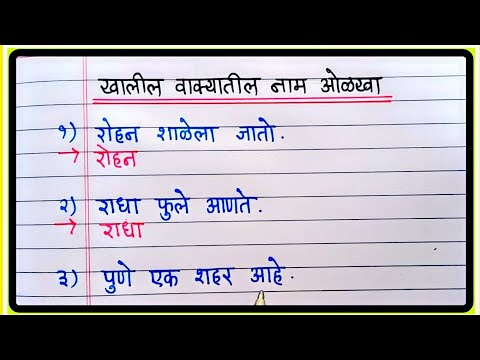 खालील वाक्यातील नाम ओळखा
१) रोहन शाळेला जातो.
→ रोहन
२) राधा फुले आणते.
→ राधा
३) पुणे एक शहर आहे.